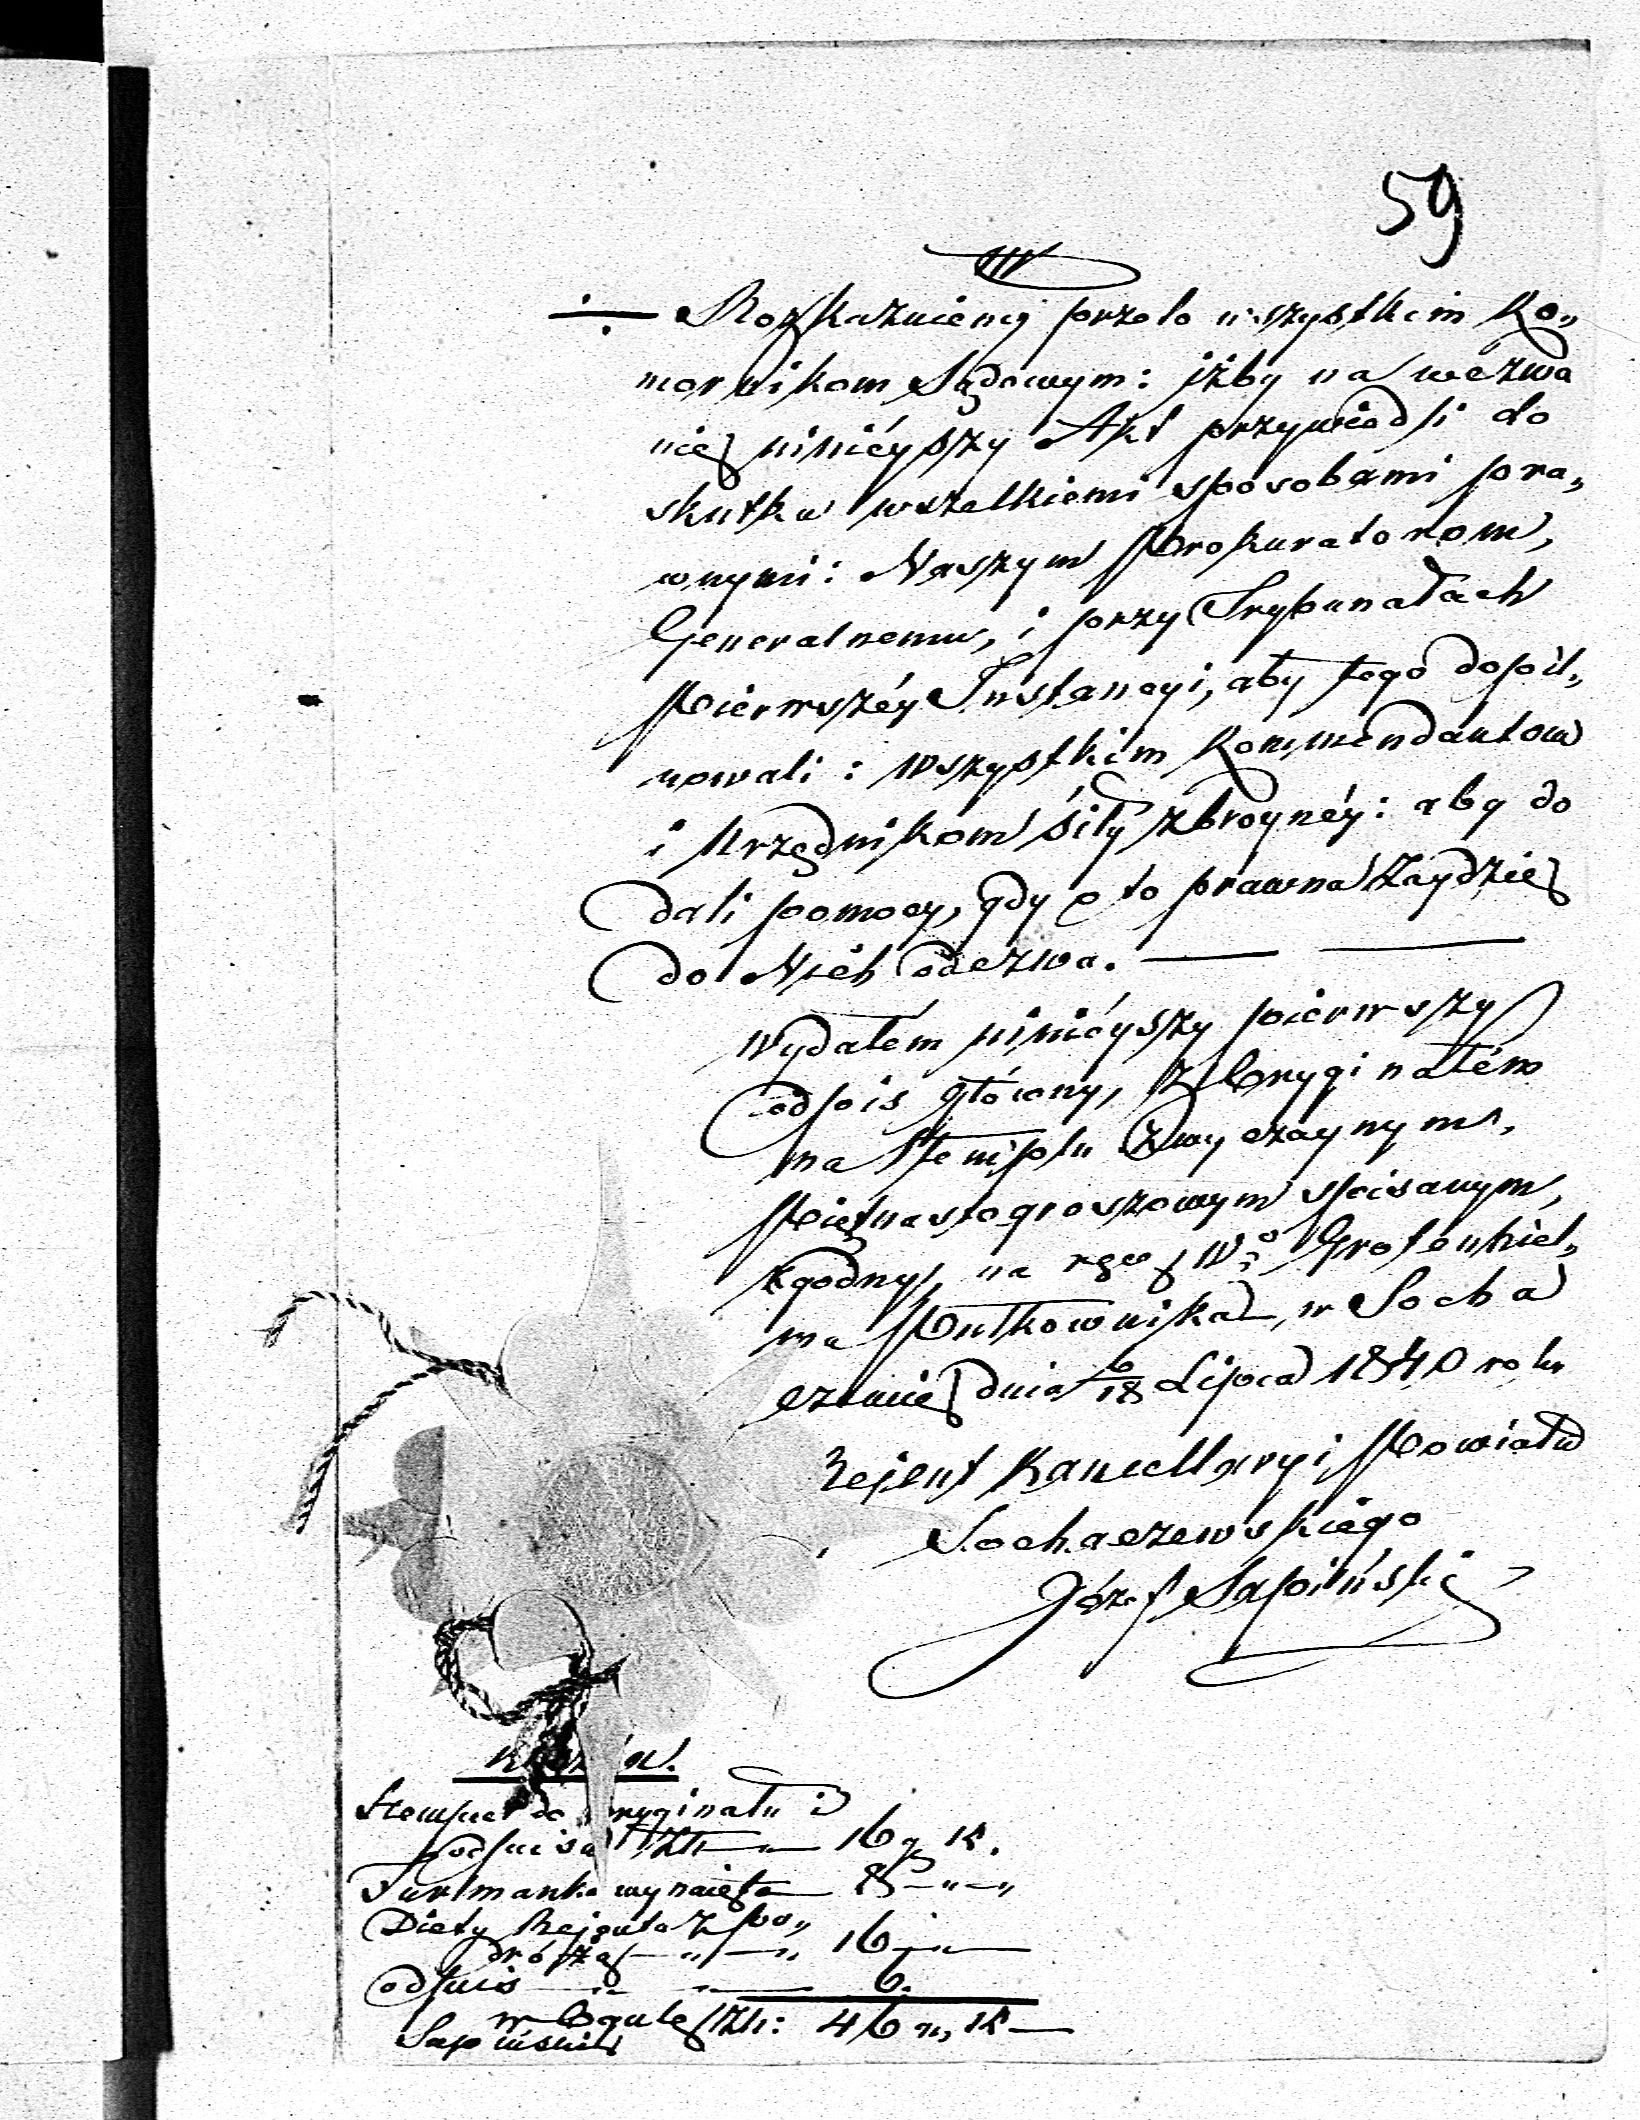 59
÷ Rozkazuiemy przeto wszystkim Ko„
mornikom Sądowym: iżby na wezwa
nie ninieyszy Akt przywiedli do
skutku wszelkiemi sposobami pra„
wnymi: Naszym Prokuratorom,
Generalnemu, i przy Trybunałach
Pierwszéy Instancyi, aby tego dopil„
nowali: wszystkim Kommendantom
i Urzędnikom Siły zbroynéy: aby do
dali pomocy, gdy o to prawna zaydzie
do Nich odezwa. — —
Wydałem ninieyszy pierwszy
odpis główny, z Oryginałem
na Stemplu zwyczaynym,
Piętnastogroszowym spisanym,
zgodny, na rzecz Wo Grotenhiel„
ma Pułkownika, w Socha
czewie dnia 6/18 Lipca 1840 roku
Rejent Kancellaryi Powiatu
Sochaczewskiego
Józef Sapiński
Stempel do oryginału i
odpisu Zł — 16 g 15.
Furmanka wynaięta — 8 — „ — „
Diety Rejenta z po„
dróżą — „ — „ 16 — „ —
odpis — „ — „ — 6.
w Ogule Zł: 46 g, 15 —
Sapiński